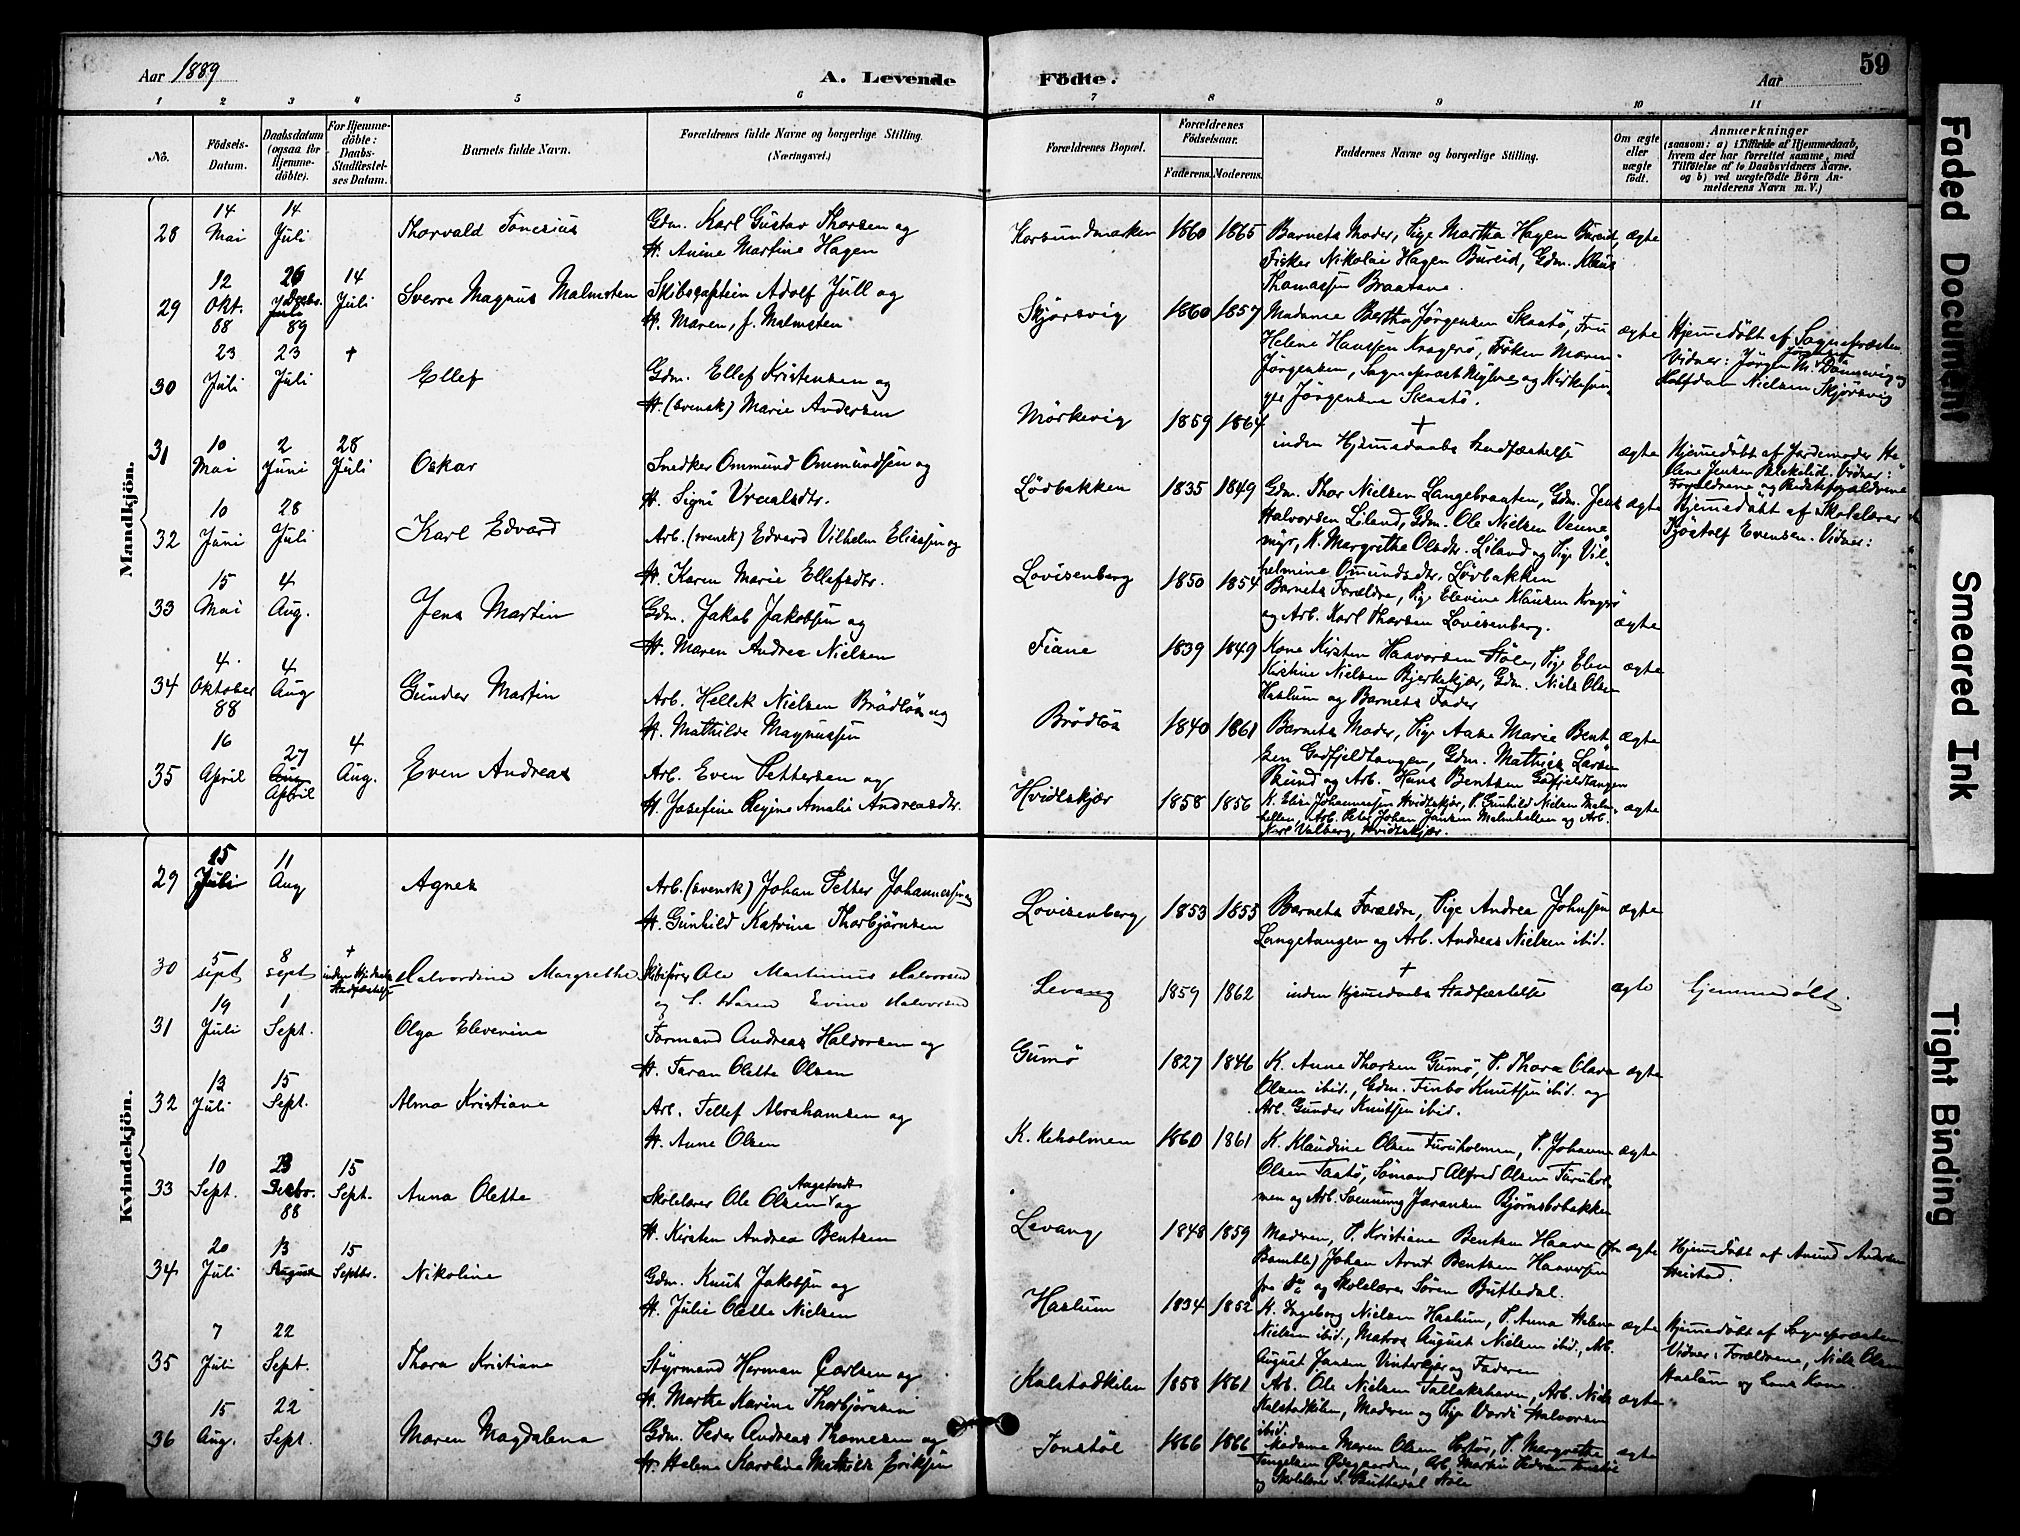 Aar 1889
A. Levende Födte.
Aar
59
1 2 3 4 5 6 7 8 9 10 11
No.
Födsels-Datum.
Daabsdatum (ogsaa for Hjemme-döbte).
For Hjemme-döbte: Daabs-Stadfæstel-ses Datum.
Barnets fulde Navn.
Forældrenes fulde Navne og borgerlige Stilling. (Næringsvei.)
Forældrenes Bopæl.
Forældrenes Födselsaar.
Faderens. Moderens.
Faddernes Navne og borgerlige Stilling.
Om ægte eller uægte födt.
Anmærkninger
(saasom: a) i Tilfælde af Hjemmedaab,
hvem der har forrettet samme, med
Tilföielse af to Daabsvidners Navne.
og b) ved uægtefödte Börn An-
melderens Navn m. V.)
Mandkjön.
28 14 Mai 14 Juli Thorvald
Gdm. Karl Gustav Thorsen og
H. Anine Martine Hagen
Korsundmarken 1860 1865
Barnets Moder, Pige Martha Hagen Bureid, ægte
Fisker Nikolai Hagen Bureid, Gdm. Klaus
Thomassen Braatane.
29 12 Okt. 88 26 89 14 Juli Sverre Magnus Malmsten
Skibscaptein Adolf Jull og
H. Maren, f. Malmsten
Skjörsvig 1860 1857
Madame Bertha Jörgensen Skaatö, Fru ægte
Helene Hanssen Kragerö, Fröken Maren
Jörgensen, Sogneprest og Kirkesan-
ger Jörgensen Skaatö.
Hjemedöbt af Sognepræsten.
Vidner: Jörgen
Halfdan Nielsen Skjörsvig
30 23 Juli 23 Juli + Ellef
Gdm. Ellef Kristensen og
H. (svensk) Marie Andersen
Mörkevig 1859 1864
+
inden Hjemmedaabs Stadfæstelse ægte
31 10 Mai 2 Juni 28 Juli Oskar
Snedker Ommund Ommundsen og
H. Signe Vraalsdtr.
Lövbakken 1835 1849
Gdm. Thor Nielsen Langebraaten, Gdm. Jens ægte
Halvorsen Liland, Gdm. Ole Nielsen Venne-
myr, K. Margrethe Olsdtr. Liland og Pige Vil-
helmine Omundsdtr. Lövbakken
Hjemedöbt af Jordemoder
Forældrene og
Hjemedöbt af Skolelærer
Evensen. Vidner:
32 10 Juni 28 Juli Karl Edvard
Arb. (svensk) Edvard Vilhelm Eliassen og
H. Karen Marie Ellefsdtr.
Lovisenberg 1850 1854
Barnets Forældre, Pige Elevine Klausen Kragerö
og Arb. Karl Thorsen Lovisenberg. ægte
33 15 Mai 4 Aug. Jens Martin
Gdm. Jakob Jakobsen og
H. Maren Andrea Nielsen
Fiane 1839 1849
Kone Kirsten Haavorsen Stöle, Pige Elen ægte
Kirstine Nielsen Bjerkekjær, Gdm. Niels Olsen
Haslum og Barnets Fader
34 4 Oktober 88 4 Aug Gunder Martin
Arb. Hellek Nielsen Brödlös og
H. Mathilde Magnussen
Brödlös 1840 1861
Barnets Moder, Pige Aase Marie Bent- ægte
sen Gadfjeldtangen, Gdm. Mathias Larsen
og Arb. Hans Bentsen Gadfjeldtangen
35 16 April 27 April 4 Aug. Even Andreas
Arb. Even Pettersen og
H. Josefine Regine Amalie Andreasdtr.
Hvidtskjær 1858 1856
K. Elise Johannessen Hvidtskjær, P. Gunhild Nielsen Malm-
hellen, Arb. Peter Johan Jansen Malmhellen og Arb. ægte
Karl Valberg, Hvidtskjær.
Kvindekjön.
29 15 Juli 11 Aug Agnes
Arb. (svensk) Johan Petter Johannessen og
H. Gunhild Katrine Thorbjörnsen
Lovisenberg 1853 1855
Barnets Forældre, Pige Andrea Johnsen ægte
Langetangen og Arb. Andreas Nielsen ibid.
30 5 sept 8 sept + Halvordine Margrethe
Skibsförer Ole Martinius Halvorsen
og Karen Evine Halvorsen
Levang 1859 1862
+
inden Hjemedaabs Stadfæstelse ægte
hjemmedöbt.
31 19 Juli 1 Sept. Olga Elevenine
Formand Andreas Haldorsen og
H. Taran Olette Olsen
Gumö 1827 1846
K. Anne Thorsen Gumö, P. Thora Olava ægte
Olsen ibid., Gdm. Finbo Knutsen ibid. og
Arb. Gunder Knutsen ibid.
32 13 Juli 15 Sept. Alma Kristiane
Arb. Tellef Abrahamsen og
H. Anne Olsen
1860 1861
K. Klaudine Olsen Furuholmen, P. Johanne ægte
Olsen Taatö, Sömand Alfred Olsen Furuhol-
men og Arb. Svennung Jaransen Björnsbobakken
33 10 Sept. 23 88 15 Sept. Anna Olette
Skolelærer Ole Olsen Aagetvedt og
H. Kirsten Andrea Bentsen
Levang 1848 1859
Moderen, P. Kristiane Bentsen Haave (fra ægte
Bamble) Johan Arnt Bentsen Haaversen
fra Do og Skolelærer Sören Buttedal.
Hjemedöbt af Amund Andersen
34 20 Juli 13 August 15 Septbr. Nikoline
Gdm. Knut Jakobsen og
H. Julie Olette Nielsen
Haslum 1834 1852
K. Ingeborg Nielsen Haslum, P. Anna Helene ægte
Nielsen ibid., Matros August Nielsen ibid., Arb.
August Jansen Vinterkjær og Faderen
Hjemedöbt af Sognepræsten
Vidner: Forældrene, Niels Olsen
Haslum og hans Kone.
35 7 Juli 22 Sept. Thora Kristiane
Styrmand Herman Carlsen og
H. Marthe Karine Thorbjörnsen
Kalstadkilen 1858 1861
Arb. Ole Nielsen Tallakshavn, Arb. Niels ægte
Kalstadkilen, Moderen og Pige Halvorsen
ibid.
36 15 Aug. 22 Sept. Maren Magdalena
Gdm. Peder Andreas Thomesen og
H. Helene Karoline Mathilde Eriksen
Jonstöl 1866 1866
Madame Maren Olsen P. Margrethe ægte
Arb. Martin Pedersen
og Skolelærer S. Buttedal Stöle
Faded Document
Smeared Ink
Tight Binding